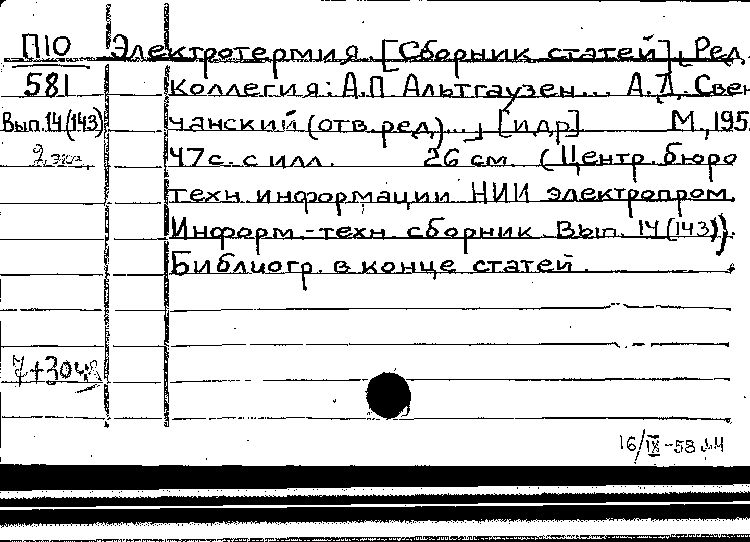 П10 Электротермия. [Сборник статей]. Ред.
581 коллегия: А.П. Альтгаузен... А.Д. Свен-
Вып.14(143) чанский (отв. ред.)... [и др.] М., 195
2 экз. 47с. с илл. 26 см. (Центр. бюро
техн. информации НИИ электропром.
Информ.-техн. сборник. Вып. 14(143)).
Библиогр. в конце статей.
16/IX-58